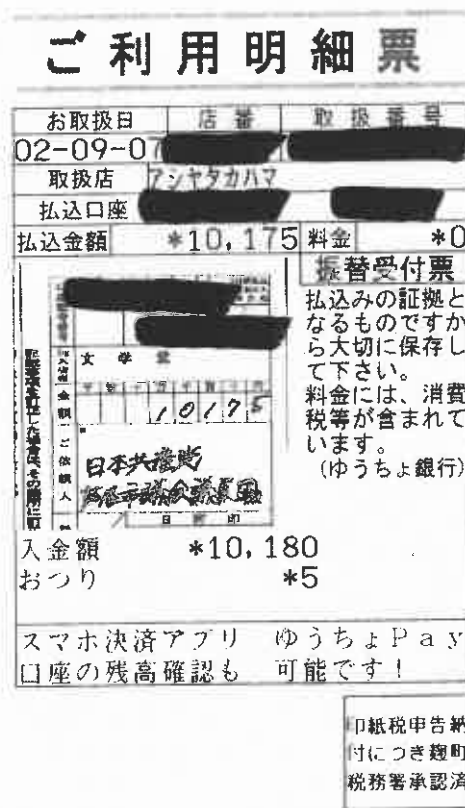 ご利用明細票
お取扱日 店番 取扱番号
02-09-07
取扱店 アシヤタカハマ
払込口座
払込金額 *10,175 料金 *0
振替受付票
払込みの証拠と
なるものですか
ら大切に保存し
て下さい。
料金には、消費
税等が含まれて
います。
(ゆうちょ銀行)
加入者名 文学堂
金額 10175
ご依頼人 日本共産党
芦屋市議会議員団
日附印
入金額 *10,180
おつり *5
スマホ決済アプリ ゆうちょPay
口座の残高確認も 可能です!
印紙税申告納
付につき麹町
税務署承認済